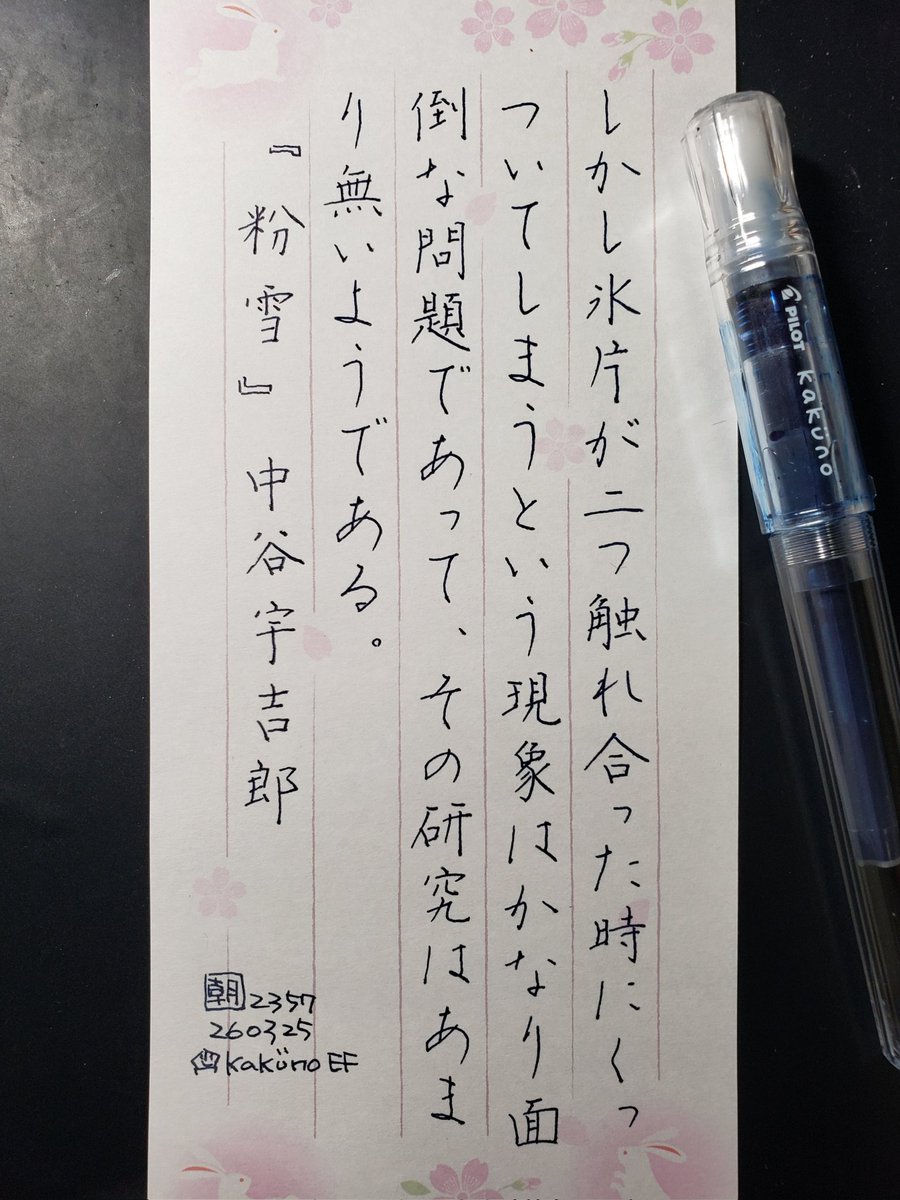 しかし氷片が二つ触れ合った時にくっ
ついてしまうという現象はかなり面
倒な問題であって、その研究はあま
り無いようである。
『粉雪』 中谷宇吉郎
朝 2357
260325
kaküno EF
PILOT kaküno